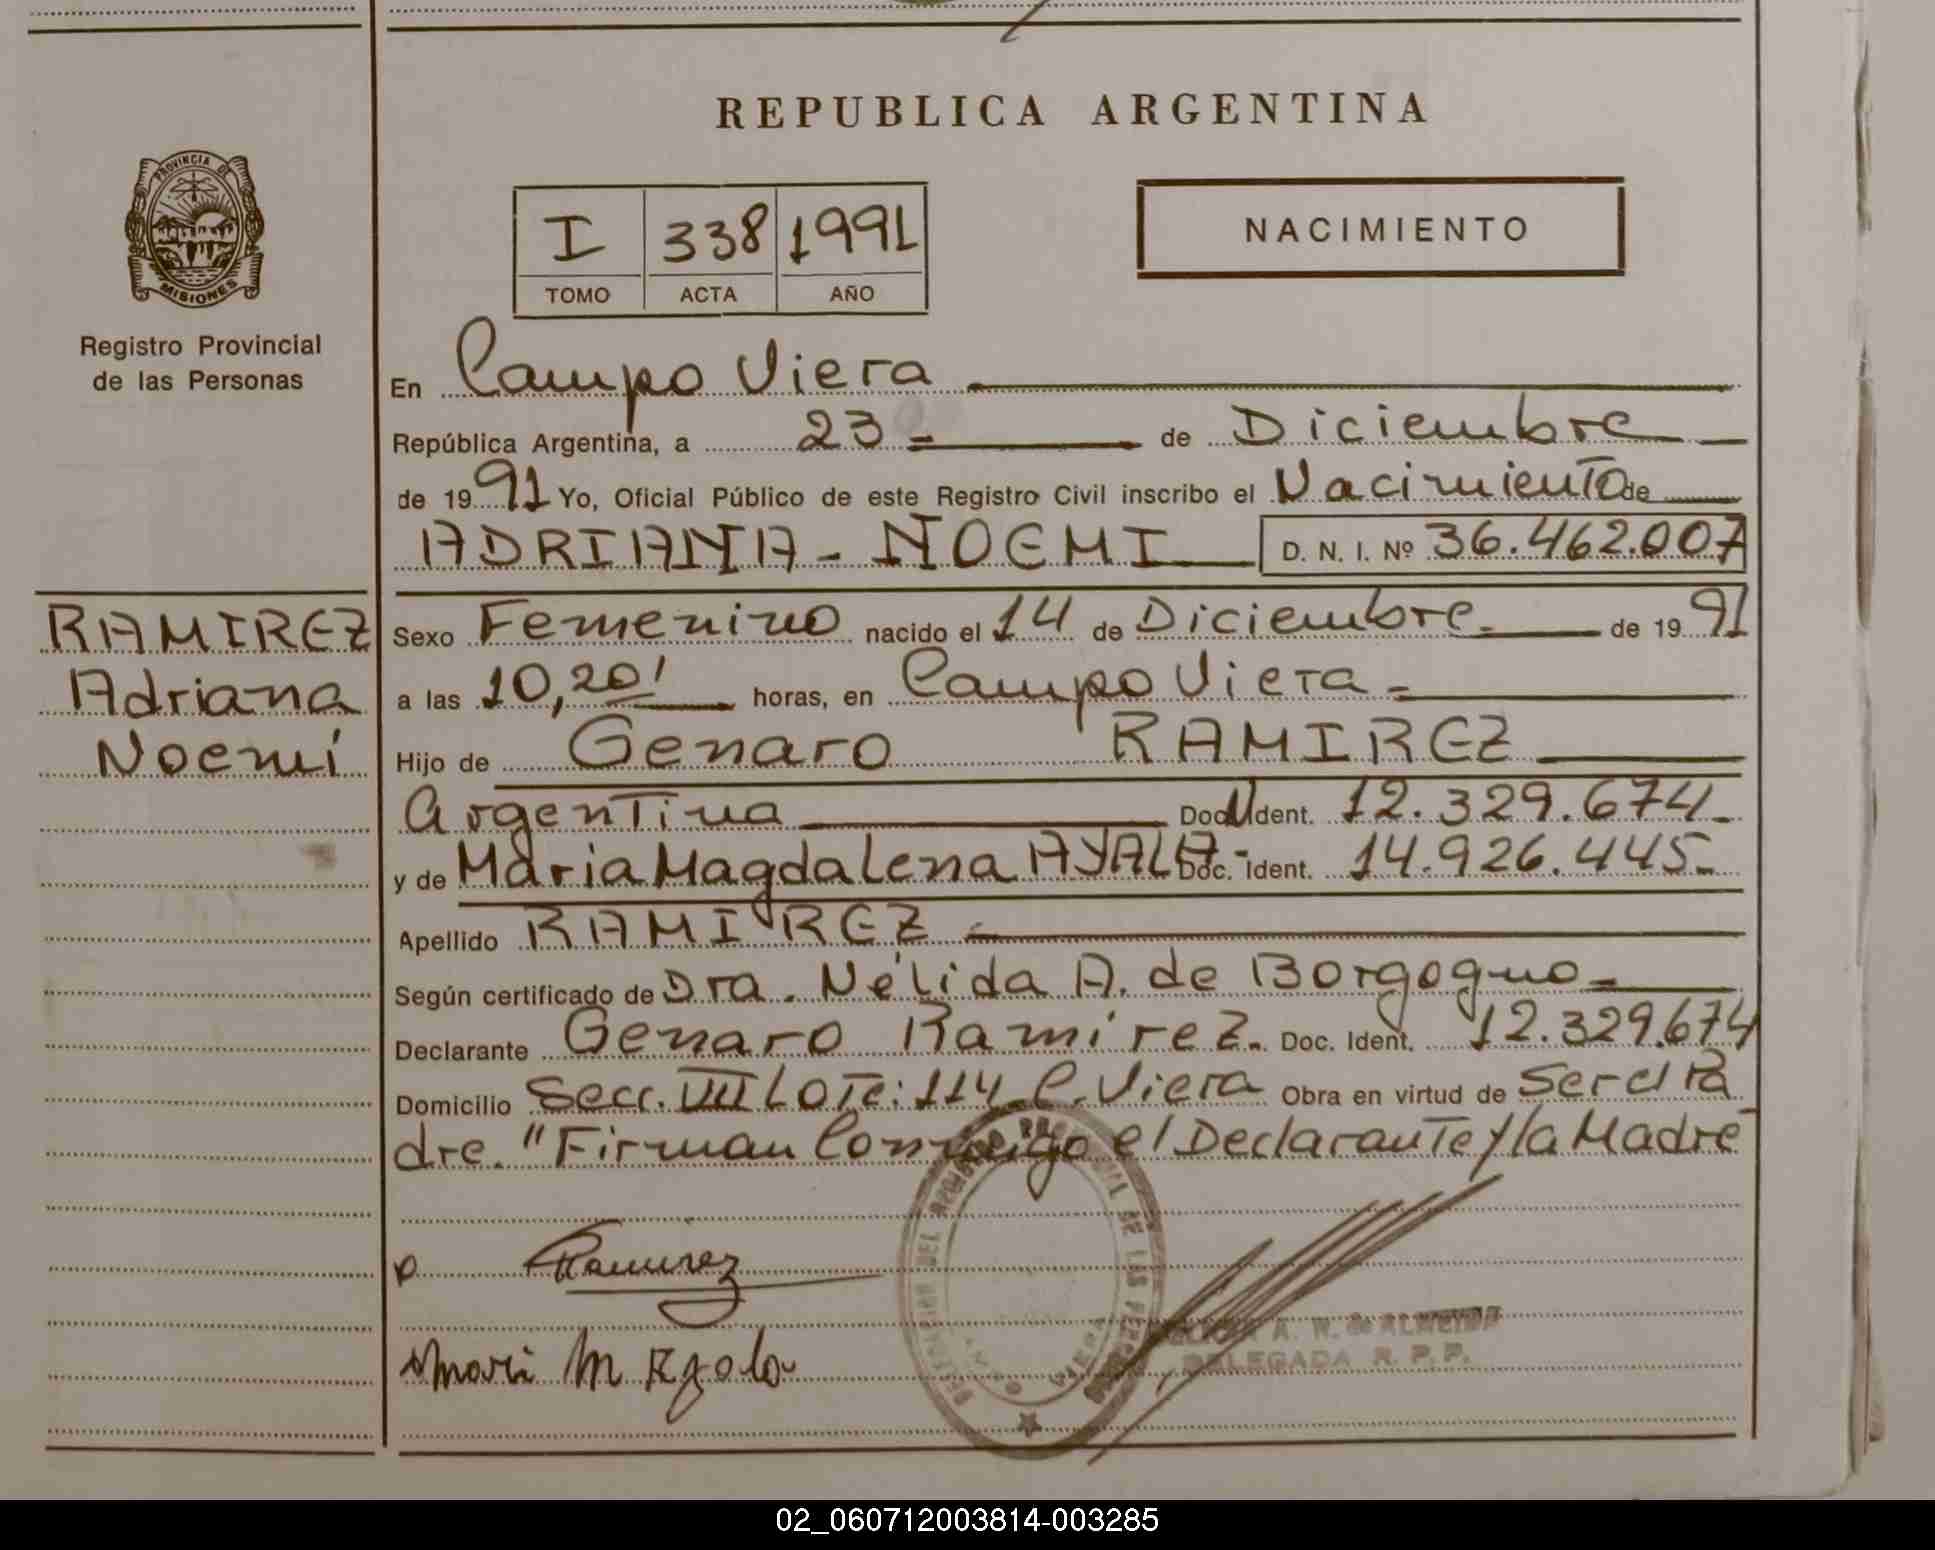 REPUBLICA ARGENTINA
PROVINCIA DE
MISIONES
Registro Provincial
de las Personas
I 338 1991
TOMO ACTA AÑO
NACIMIENTO
En Campo Viera
República Argentina, a 23 de Diciembre
de 1991 Yo, Oficial Público de este Registro Civil inscribo el Nacimiento de
ADRIANA - NOEMI D. N. I. Nº 36.462.007
RAMIREZ
Adriana
Noemí
Sexo Femenino nacido el 14 de Diciembre. de 1991
a las 10,20' horas, en Campo Viera
Hijo de Genaro RAMIREZ
Argentina Doc. Ident. 12.329.674
y de Maria Magdalena AYALA Doc. Ident. 14.926.445
Apellido RAMIREZ
Según certificado de Dra. Nélida A. de Borgogno
Declarante Genaro Ramírez. Doc. Ident. 12.329.674
Domicilio Secc. VIII Lote: 114 C. Viera Obra en virtud de Ser el Pa
dre. "Firman Conmigo el Declarante y la Madre
Ramirez
A. W. de ALMEIDA
DELEGADA R. P. P.
02_060712003814-003285